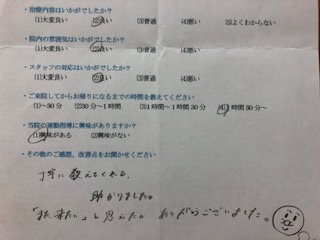 ・治療内容はいかがでしたか？
(1)大変良い (2)良い (3)普通 (4)悪い (5)よくわからない
・院内の雰囲気はいかがでしたか？
(1)大変良い (2)良い (3)普通 (4)悪い
・スタッフの対応はいかがでしたか？
(1)大変良い (2)良い (3)普通 (4)悪い
・ご来院してからお帰りになるまでの時間を教えてください
(1)～30分 (2)30分～1時間 (3)1時間～1時間30分 (4)1時間30分～
・当院の運動指導に興味がありますか？
(1)興味がある (2)興味がない
・その他のご感想、改善点をお聞かせください
丁寧に教えてくれて、
助かりました。
「また、来たい」と思えた。ありがとうございました。